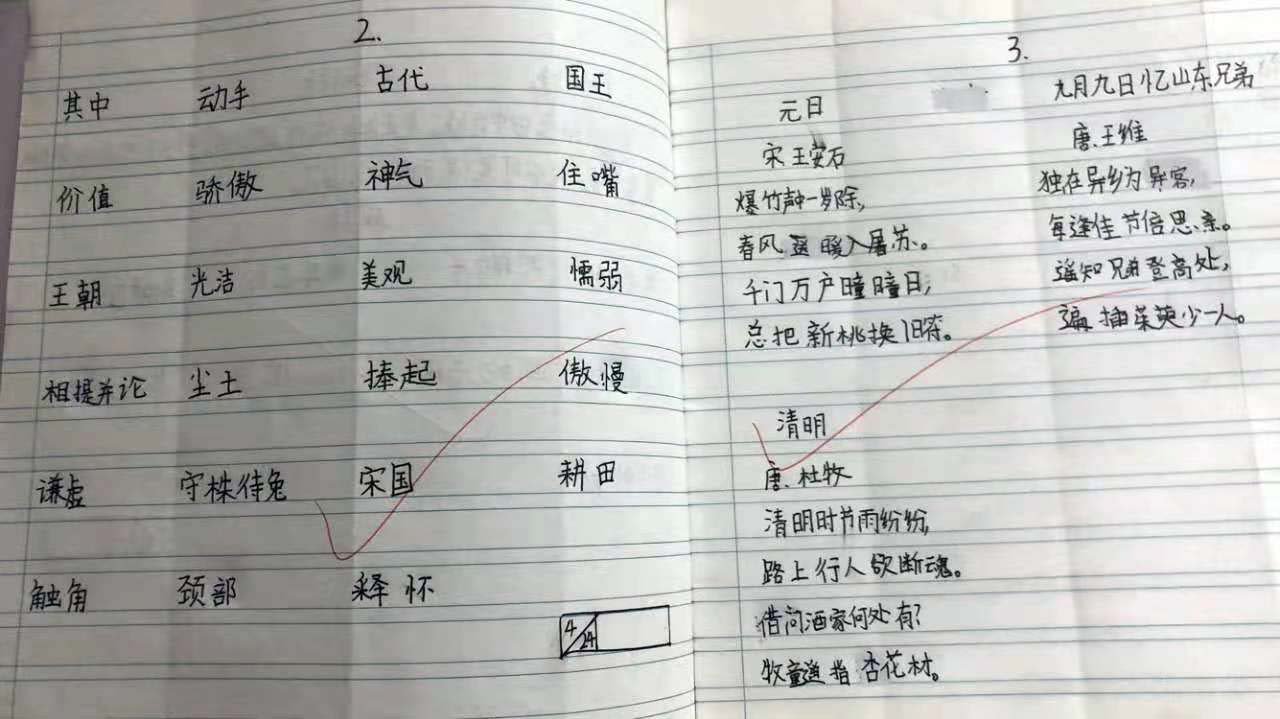 2.
其中 动手 古代 国王
价值 骄傲 神气 住嘴
王朝 光洁 美观 懦弱
相提并论 尘土 捧起 傲慢
谦虚 守株待兔 宋国 耕田
触角 颈部 释怀
4 24
3.
元日
宋.王安石
爆竹声中一岁除,
春风送暖入屠苏。
千门万户曈曈日,
总把新桃换旧符。
九月九日忆山东兄弟
唐.王维
独在异乡为异客,
每逢佳节倍思亲。
遥知兄弟登高处,
遍插茱萸少一人。
清明
唐.杜牧
清明时节雨纷纷,
路上行人欲断魂。
借问酒家何处有?
牧童遥指杏花村。